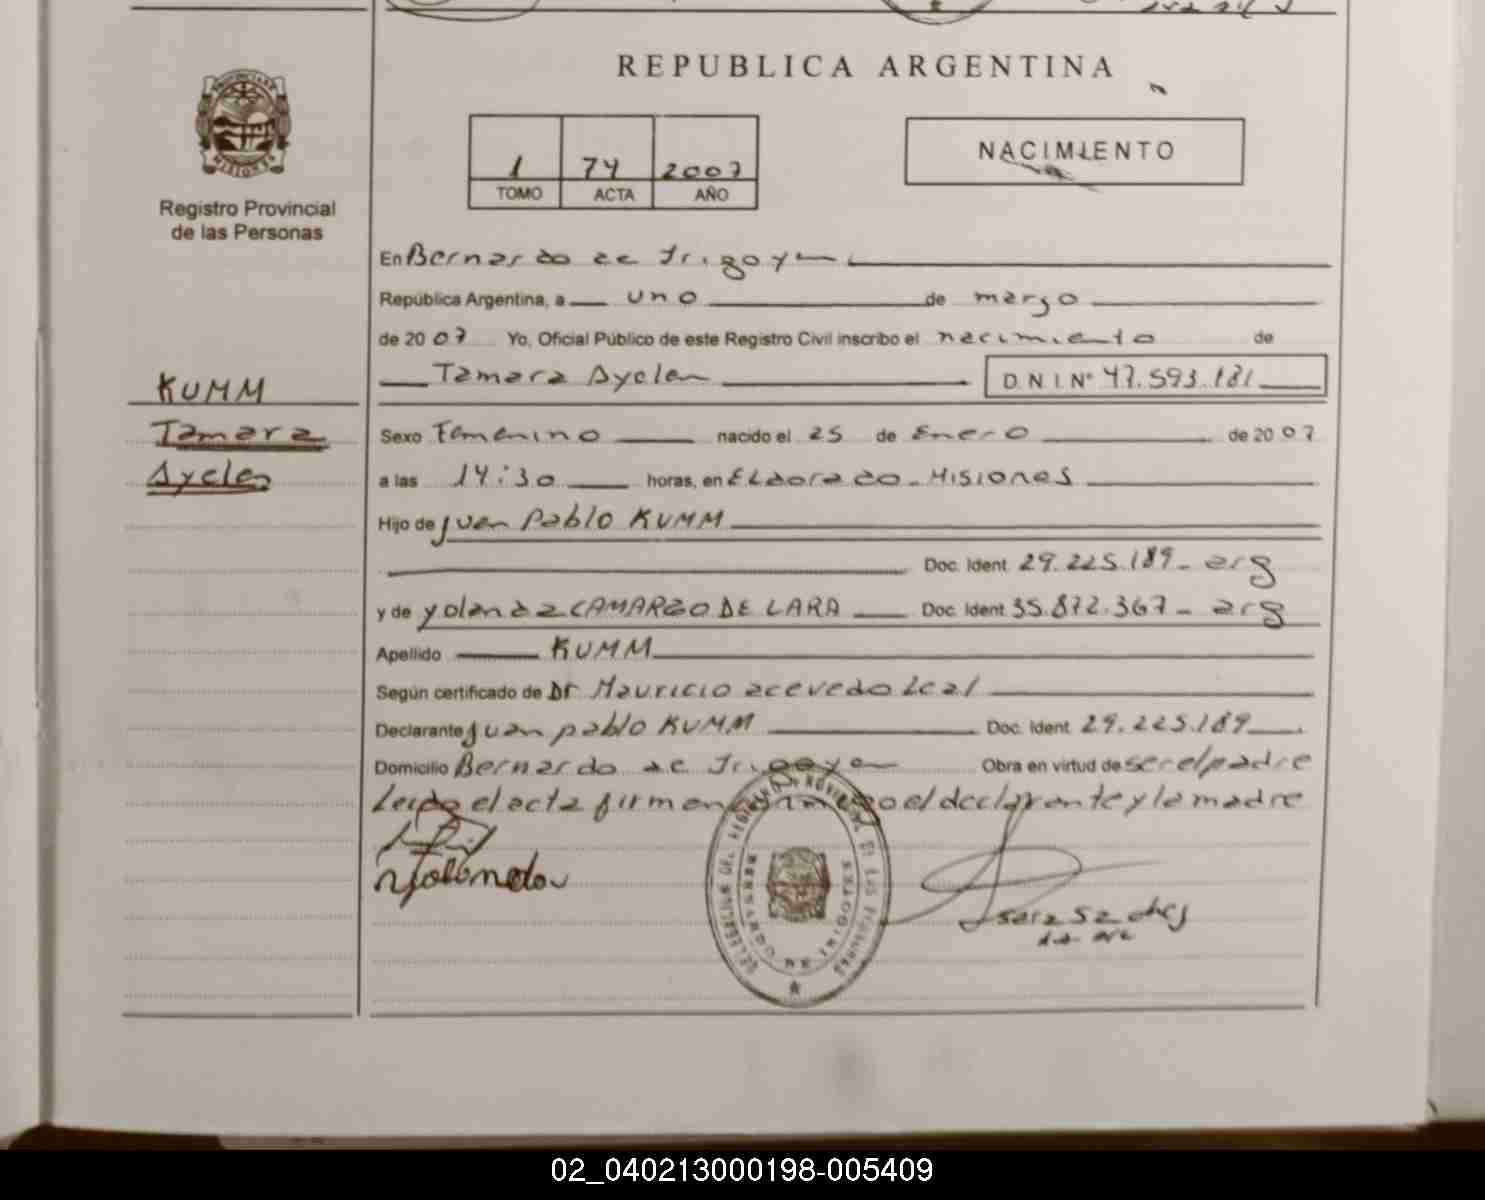 REPUBLICA ARGENTINA
PROVINCIA DE
MISIONES
Registro Provincial
de las Personas
1 74 2007
TOMO ACTA AÑO
NACIMIENTO
En Bernardo de Irigoyen
República Argentina, a uno de marzo
de 2007 Yo, Oficial Público de este Registro Civil inscribo el nacimiento de
Tamara Ayelen D.N.I.Nº 47.593.181
KUMM
Tamara
Ayelen
Sexo Femenino nacido el 25 de Enero de 2007
a las 14:30 horas, en Eldorado - Misiones
Hijo de Juan Pablo KUMM
Doc. Ident. 29.225.189 - arg
y de Yolanda CAMARGO DE LARA Doc. Ident 35.872.367 - arg
Apellido KUMM
Según certificado de Dr Mauricio acevedo Leal
Declarante Juan pablo KUMM Doc. Ident. 29.225.189
Domicilio Bernardo de Irigoyen Obra en virtud de ser el padre
Leida el acta firman conmigo el declarante y la madre
Yolanda
DELEGACION DEL REGISTRO PROVINCIAL DE LAS PERSONAS
BERNARDO DE IRIGOYEN
02_040213000198-005409